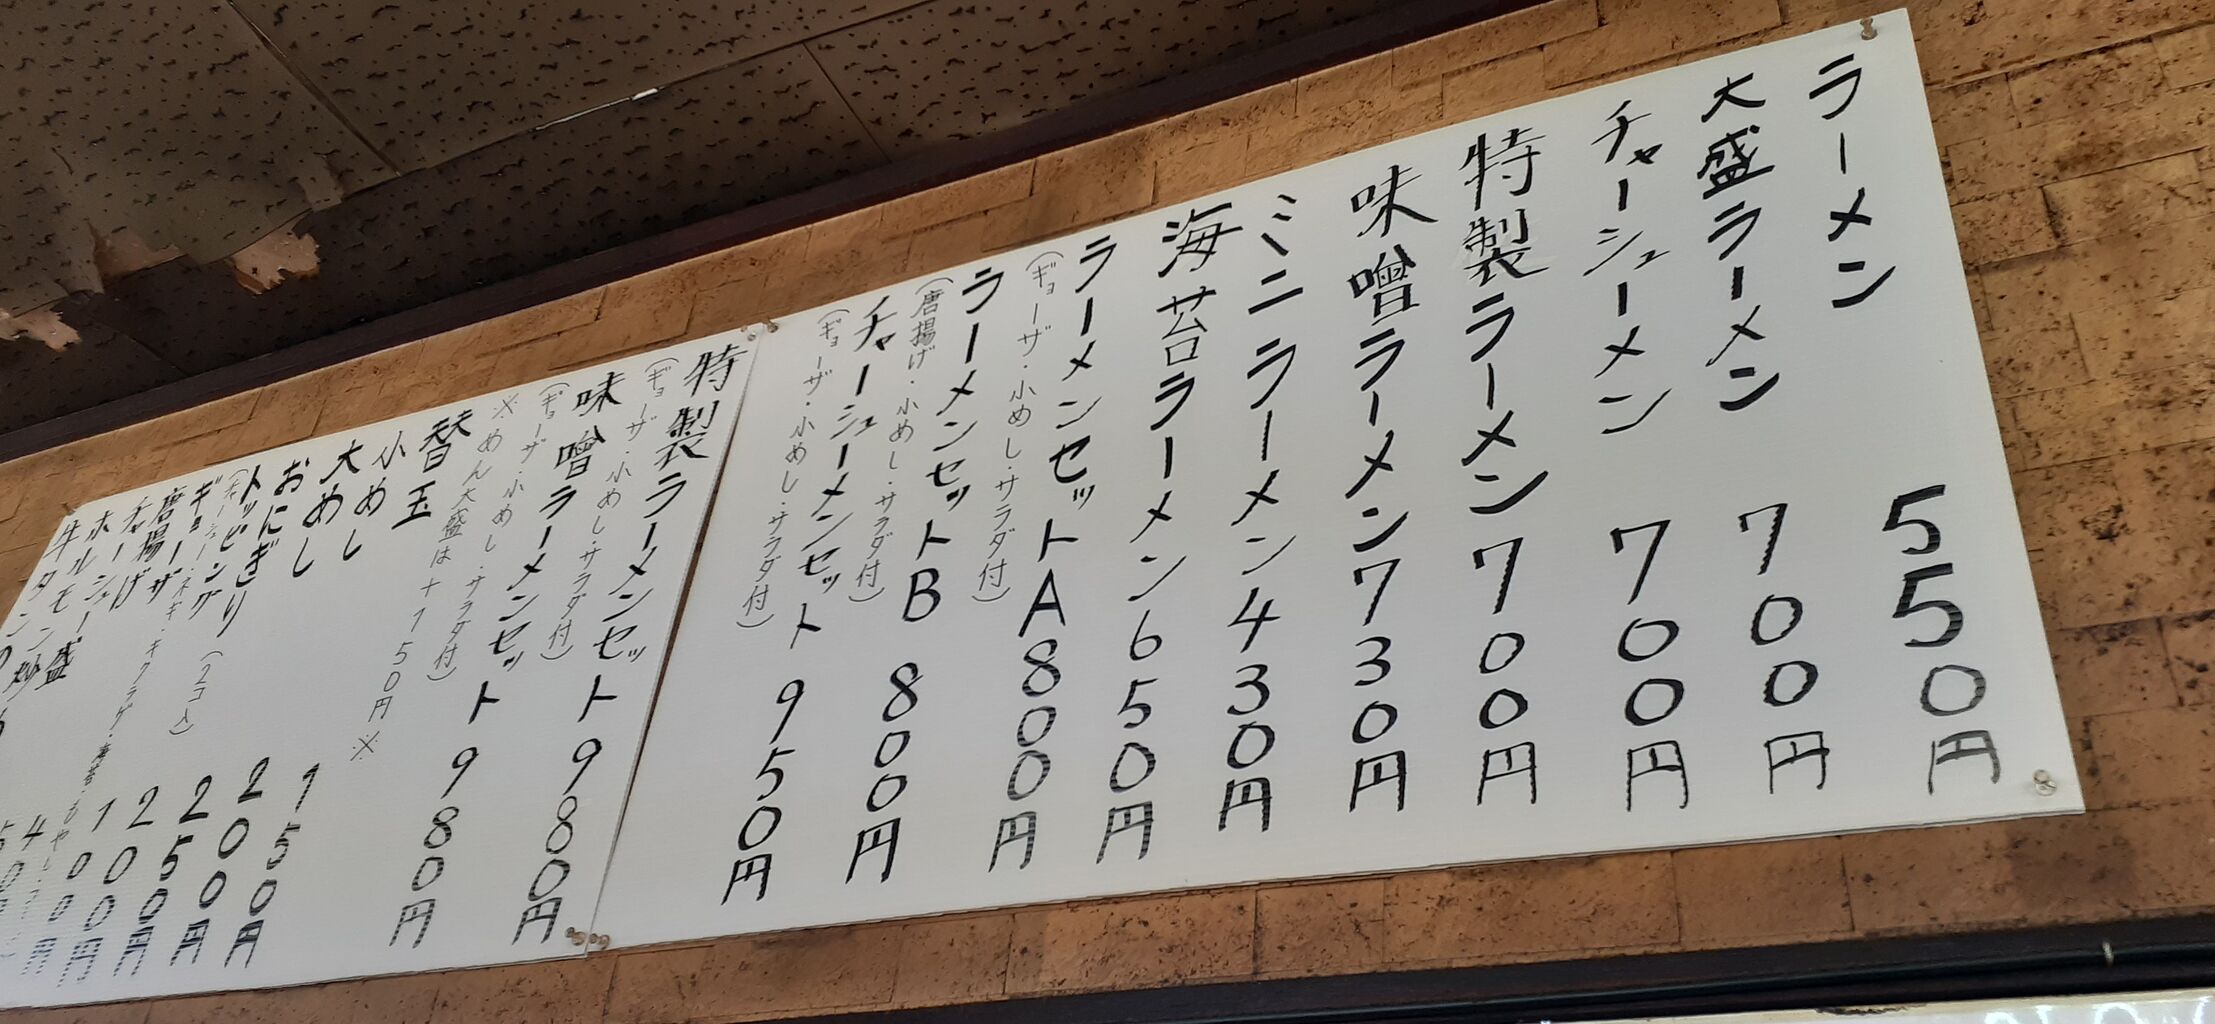 ラーメン 550円
大盛ラーメン 700円
チャーシューメン 700円
特製ラーメン 700円
味噌ラーメン 730円
ミニラーメン 430円
海苔ラーメン 650円
ラーメンセットA 800円
(ギョーザ・小めし・サラダ付)
ラーメンセットB 800円
(唐揚げ・小めし・サラダ付)
チャーシューメンセット 950円
(ギョーザ・小めし・サラダ付)
特製ラーメンセット 980円
(ギョーザ・小めし・サラダ付)
味噌ラーメンセット 980円
(ギョーザ・小めし・サラダ付)
※めん大盛は+150円※
替玉 150円
小めし 200円
大めし 250円
おにぎり(2コ入) 200円
トッピング 100円
ギョーザ
唐揚げ
チャーシュー盛